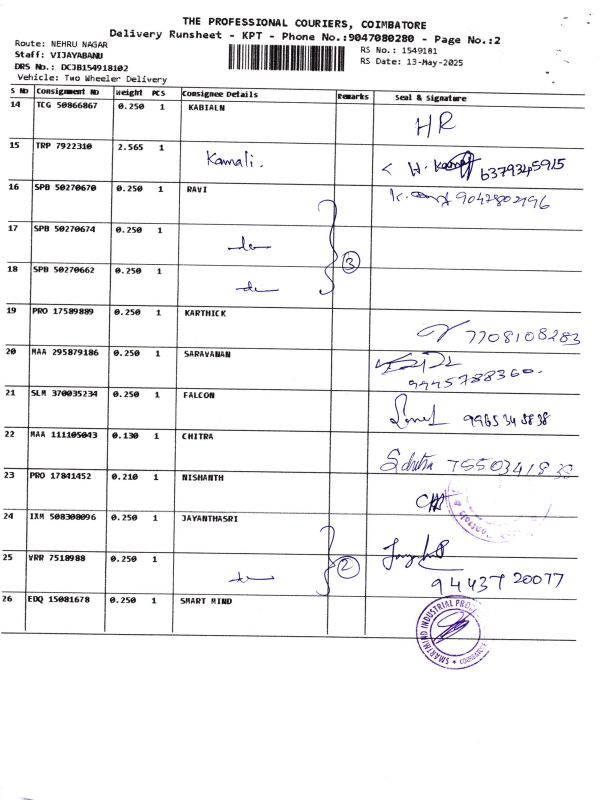 THE PROFESSIONAL COURIERS, COIMBATORE
Delivery Runsheet - KPT - Phone No.:9047080280 - Page No.:2
Route: NEHRU NAGAR
Staff: VIJAYABANU
DRS No.: DCJB154918102
Vehicle: Two Wheeler Delivery
RS No.: 1549181
RS Date: 13-May-2025
S No Consignment No Weight PCS Consignee Details Remarks Seal & Signature
14 TCG 50866867 0.250 1 KABIALN HR
15 TRP 7922310 2.565 1 Kamali. 6379345915
16 SPB 50270670 0.250 1 RAVI 9047802196
17 SPB 50270674 0.250 1
18 SPB 50270662 0.250 1 3
19 PRO 17589889 0.250 1 KARTHICK 7708108283
20 MAA 295879186 0.250 1 SARAVANAN
9445788360.
21 SLM 370035234 0.250 1 FALCON 9965348838
22 MAA 111105043 0.130 1 CHITRA
23 PRO 17841452 0.210 1 NISHANTH
24 IXM 508308096 0.250 1 JAYANTHASRI
25 VRR 7518988 0.250 1 2 9443720077
26 EDQ 15081678 0.250 1 SMART MIND
SMARTMIND INDUSTRIAL